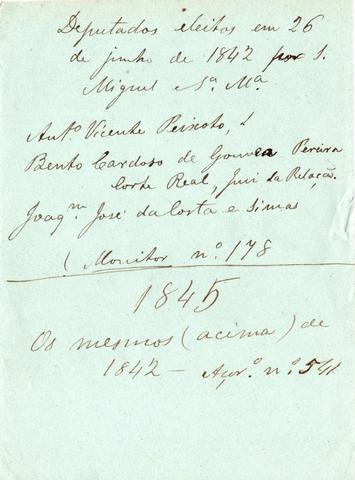 Deputados eleitos em 26
de junho de 1842 por S.
Miguel e Sª. Mª.
Antº. Vicente Peixoto,
Bento Cardoso de Gouvea Pereira
Corte Real, Juiz da Relação.
Joaqm. José da Costa e Simas
(Monitor nº. 178
1845
Os mesmos (acima) de
1842 — Açorº. nº.